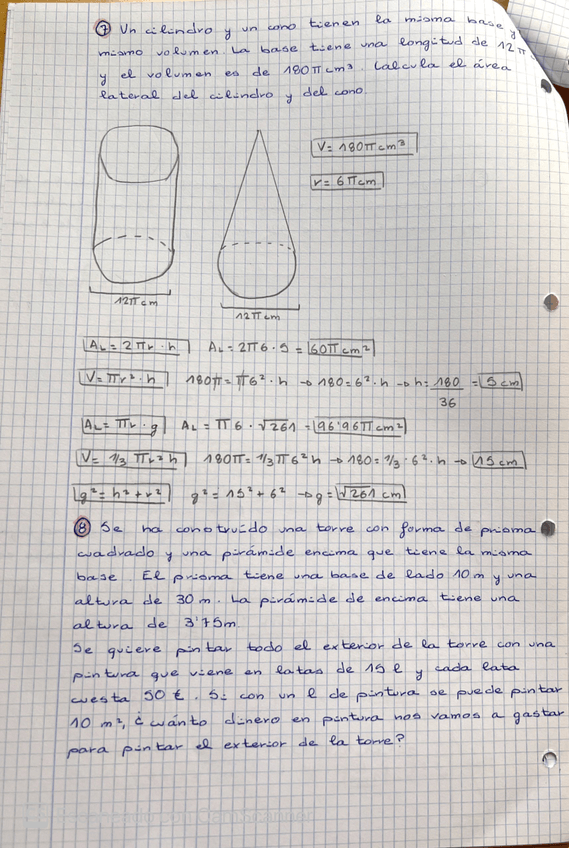 ⑦ Un cilindro y un cono tienen la misma base y
mismo volumen. La base tiene una longitud de 12π
y el volumen es de 180π cm³. Calcula el área
lateral del cilindro y del cono.
V= 180π cm³
r= 6π cm
12π cm
12π cm
AL = 2πr · h AL = 2π6 · 5 = 60π cm²
V= πr² · h 180π = π6² · h → 180 = 6² · h → h = 180/36 = 5 cm
AL = πr · g AL = π6 · √261 = 96'96π cm²
V= 1/3 πr² h 180π = 1/3 π6² h → 180 = 1/3 · 6² · h → 15 cm
g² = h² + r² g² = 15² + 6² → g = √261 cm
⑧ Se ha construido una torre con forma de prisma
cuadrado y una pirámide encima que tiene la misma
base. El prisma tiene una base de lado 10 m y una
altura de 30 m. La pirámide de encima tiene una
altura de 3'75m.
Se quiere pintar todo el exterior de la torre con una
pintura que viene en latas de 15 l y cada lata
cuesta 50 €. Si con un l de pintura se puede pintar
10 m², ¿cuánto dinero en pintura nos vamos a gastar
para pintar el exterior de la torre?